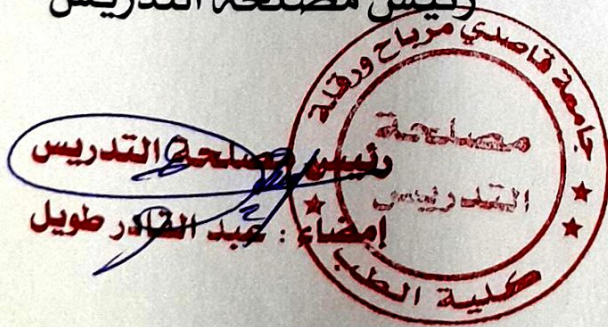 رئيس مصلحة التدريس
جامعة قاصدي مرباح ورقلة
مصلحة
التدريس
كلية الطب
رئيس مصلحة التدريس
إمضاء : عبد القادر طويل